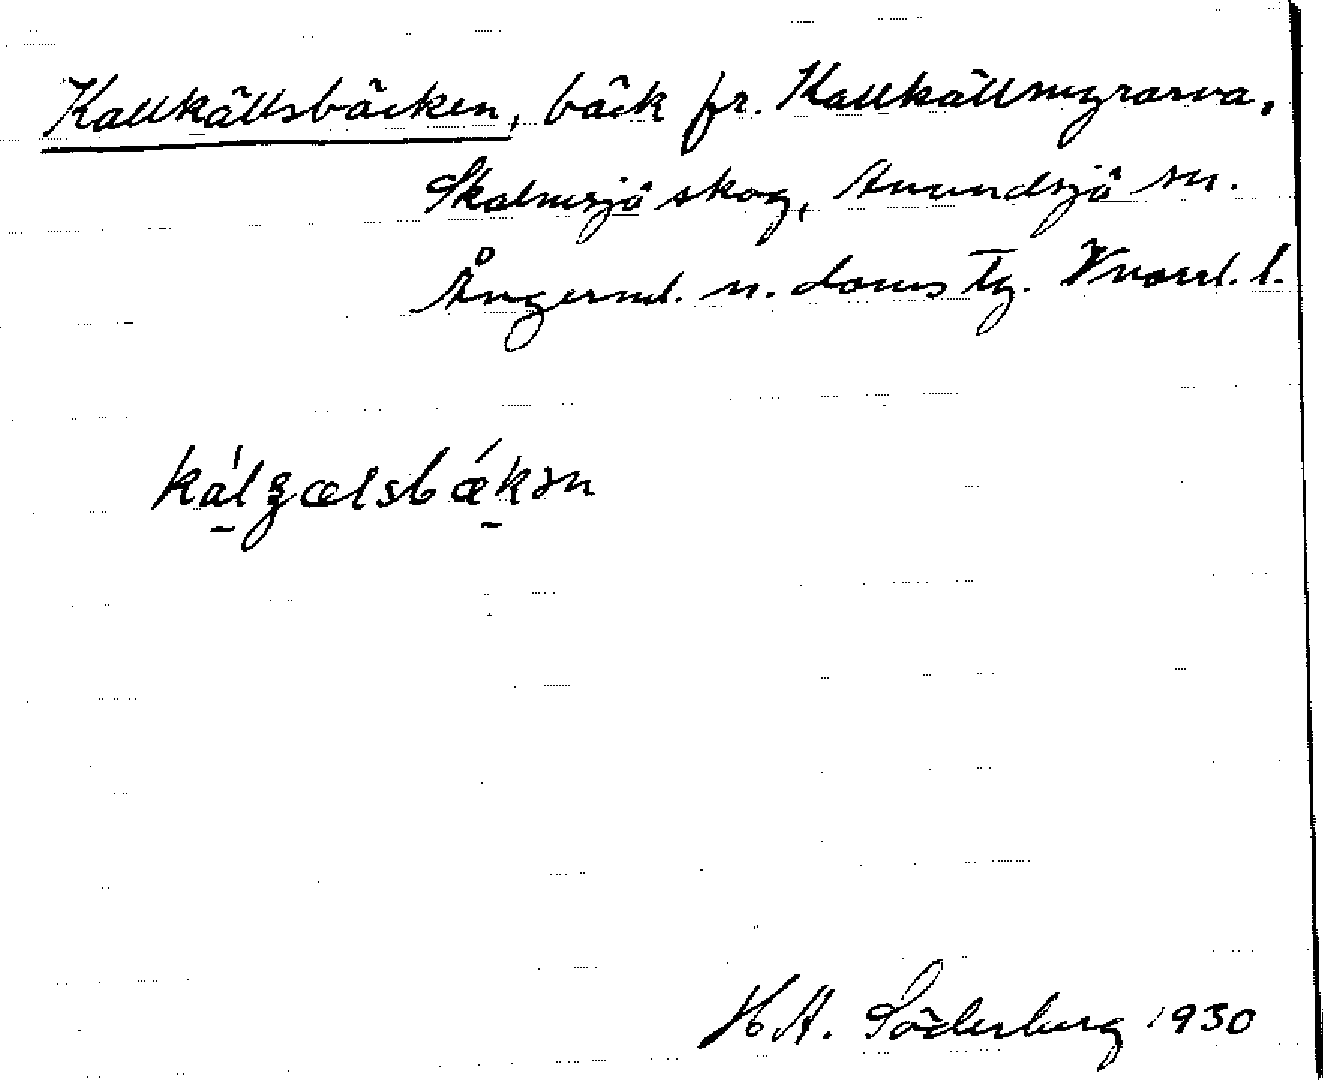 Kallkällsbäcken, bäck fr. Kallkällmyrarna,
Skalmsjö skog, Anundsjö sn.
Ångerml. n. doms Tg. Vnorrl. l.
kálʒælsbǽkən
H A. Söderberg 1930